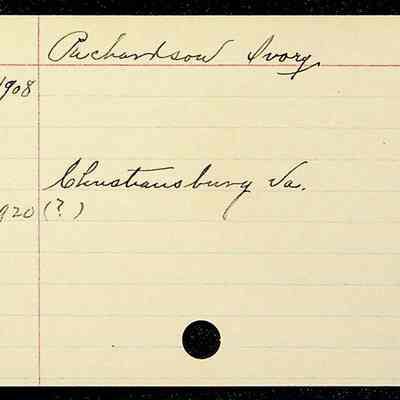 Richardson Ivory
1908
Christiansburg Va.
1920 (?)